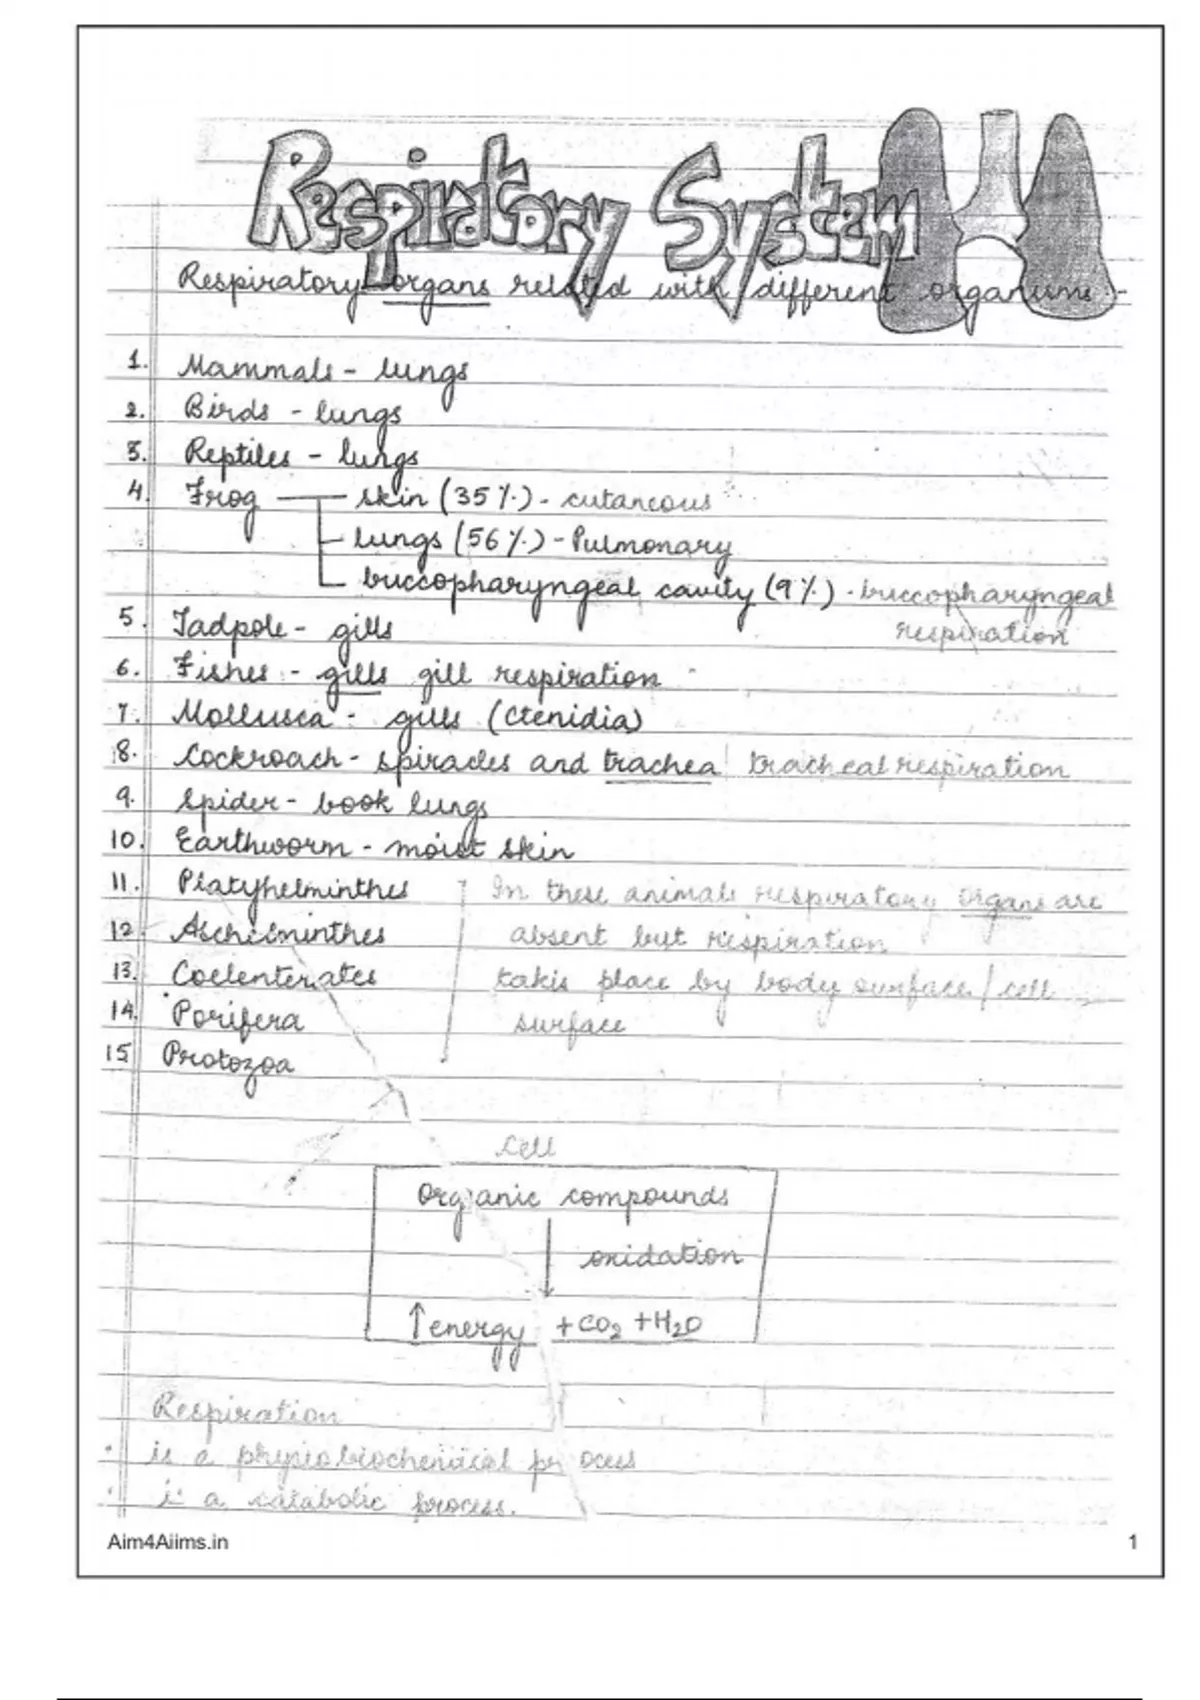 Respiratory System
Respiratory organs related with different organums -
1. Mammals - lungs
2. Birds - lungs
3. Reptiles - lungs
4. Frog skin (35%) - cutaneous
lungs (56%) - Pulmonary
buccopharyngeal cavity (9%) - buccopharyngeal
respiration
5. Tadpole - gills
6. Fishes - gills gill respiration
7. Mollusca - gills (Ctenidia)
8. Cockroach - spiracles and trachea tracheal respiration
9. Spider - book lungs
10. Earthworm - moist skin
11. Platyhelminthes In these animals respiratory organs are
12. Aschelminthes absent but respiration
13. Coelenterates takes place by body surface / cell
14. Porifera surface
15 Protozoa
Cell
Organic compounds
oxidation
↑energy + CO₂ + H₂O
Respiration
is a physiobiochemical process
is a catabolic process.
Aim4Aiims.in 1